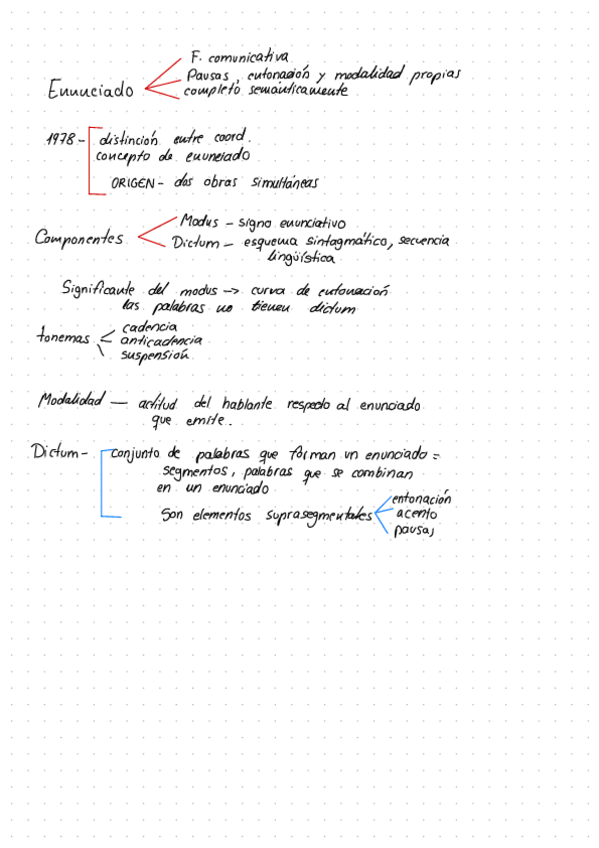 F. comunicativa
Enunciado
Pausas, entonación y modalidad propias
completo semánticamente
1978 - distinción entre coord.
concepto de enunciado
ORIGEN - dos obras simultáneas
Modus - signo enunciativo
Componentes
Dictum - esquema sintagmático, secuencia
lingüística
Significante del modus -> curva de entonación
las palabras no tienen dictum
cadencia
tonemas
anticadencia
suspensión
Modalidad — actitud del hablante respecto al enunciado
que emite.
Dictum - conjunto de palabras que forman un enunciado =
segmentos, palabras que se combinan
en un enunciado
entonación
Son elementos suprasegmentales
acento
pausas